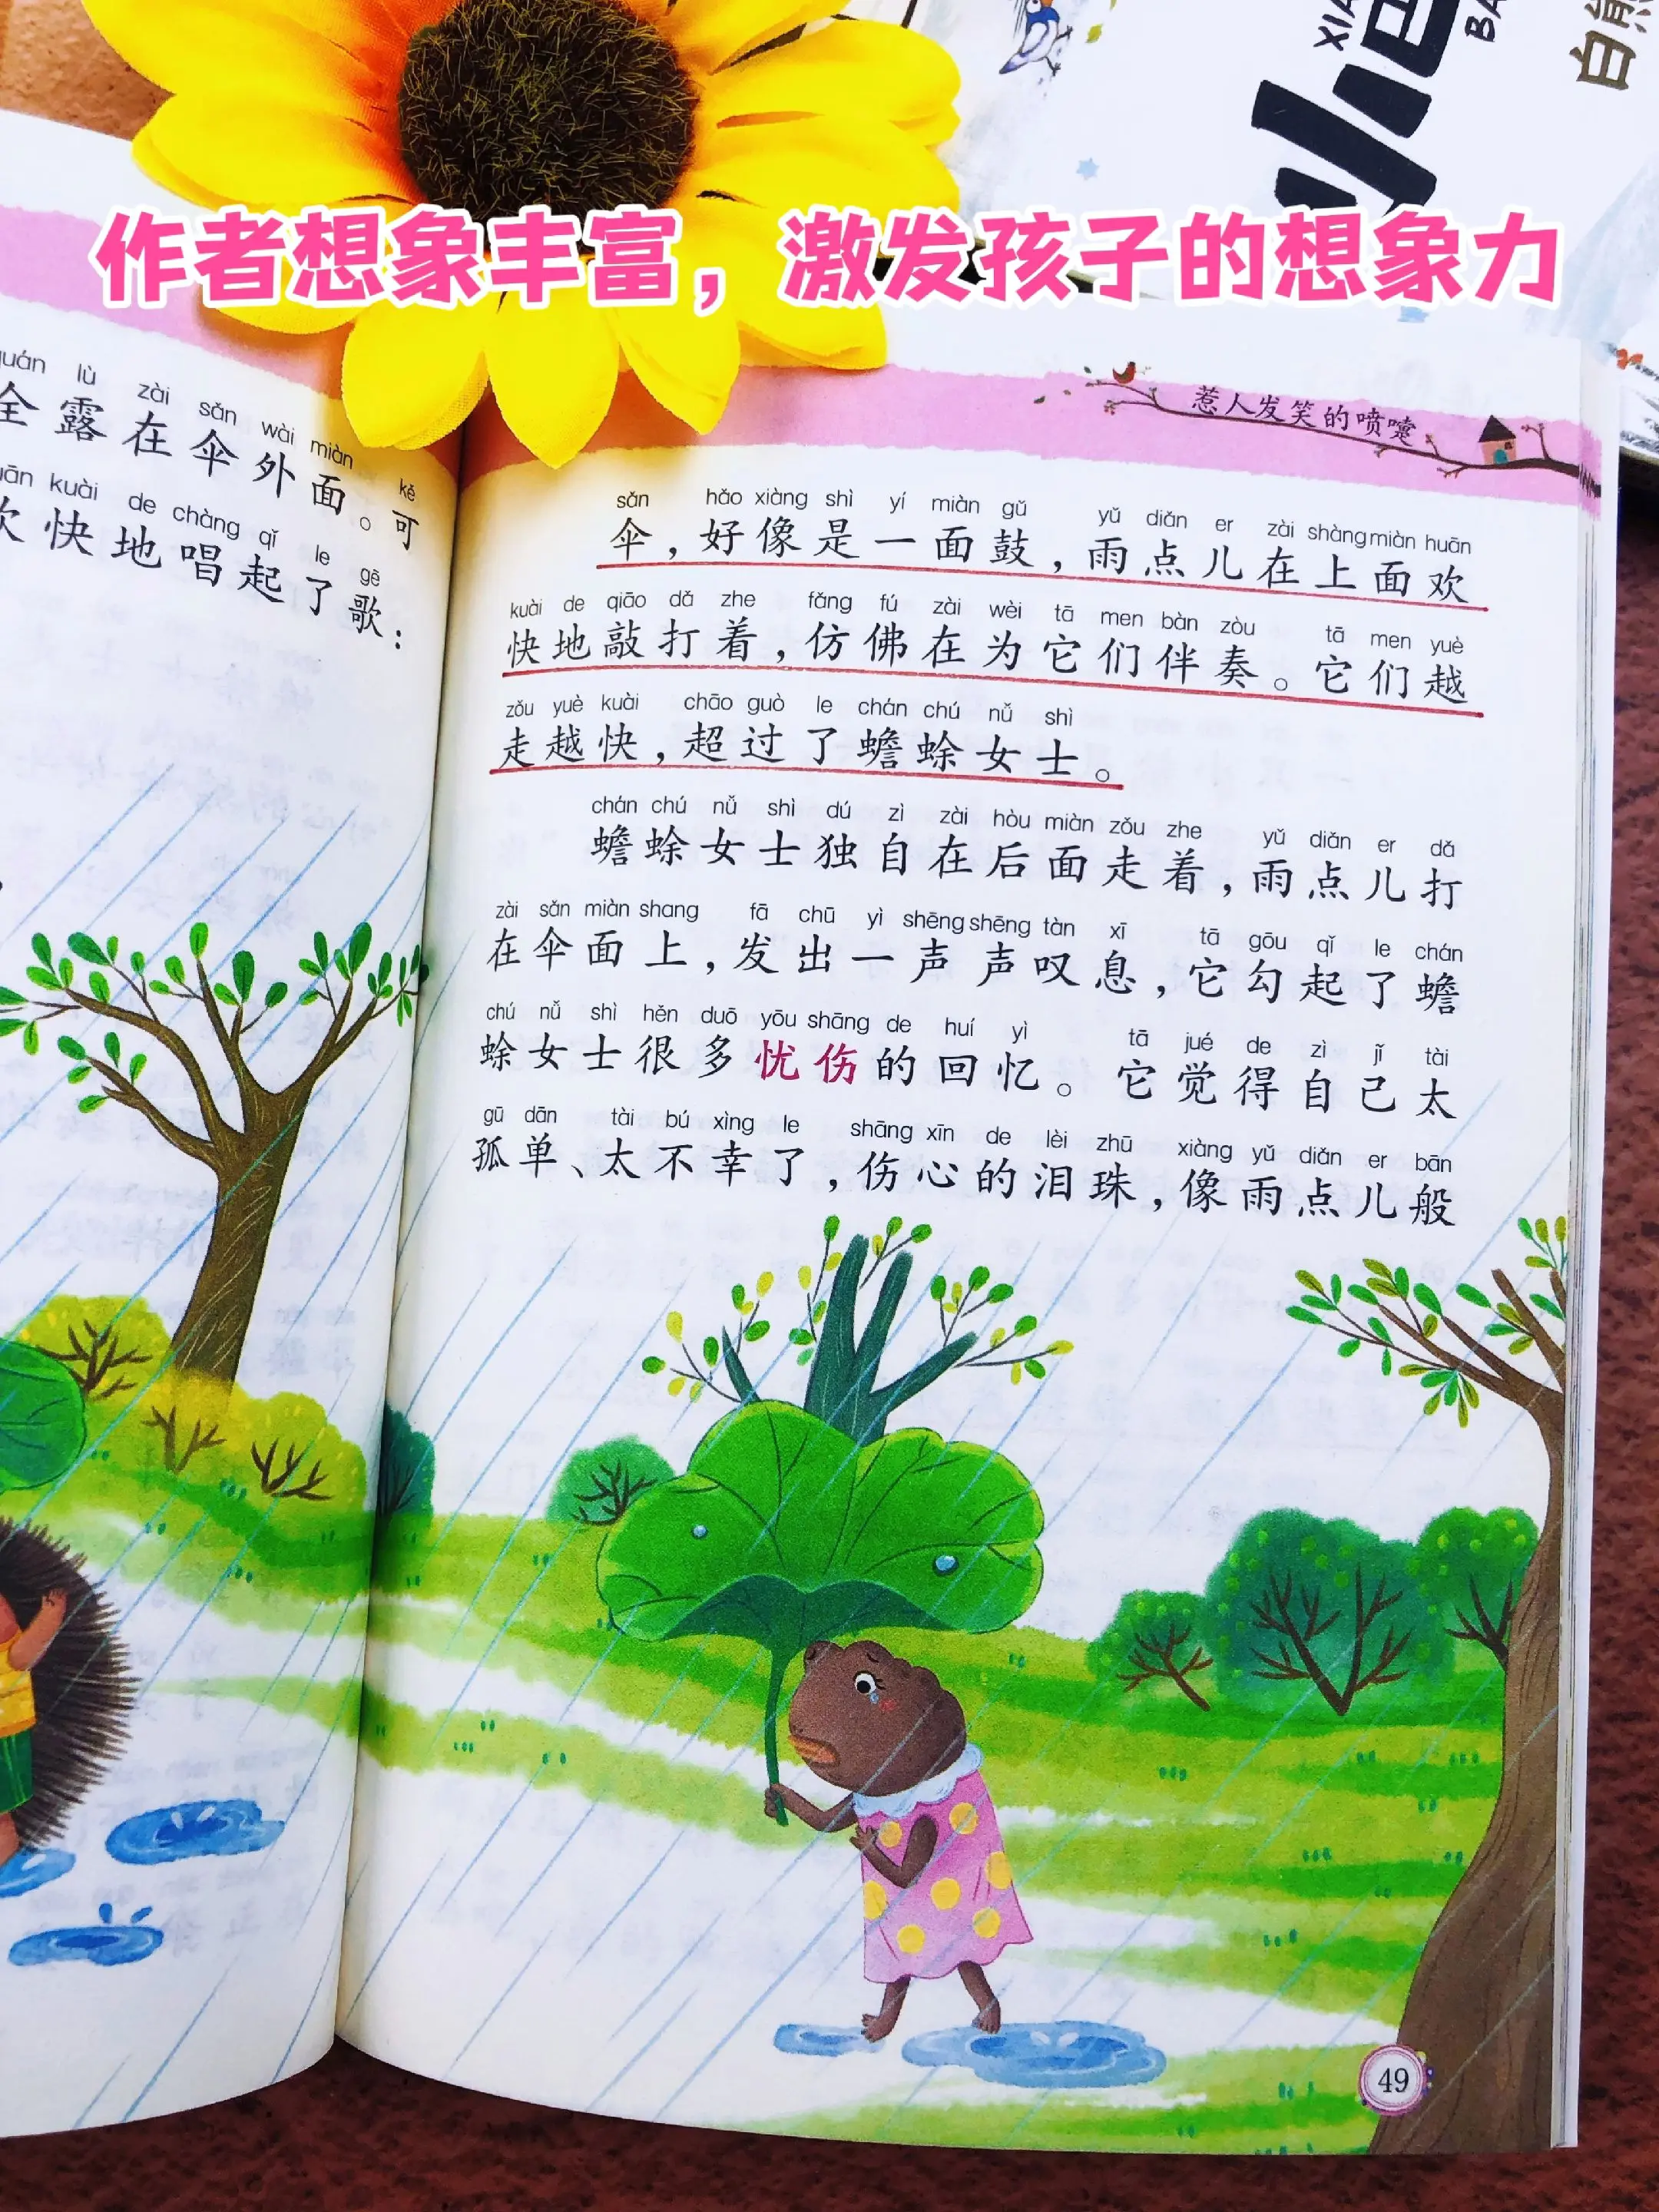 作者想象丰富，激发孩子的想象力
lù zài sǎn wài miàn kě
全露在伞外面。可
kuài de chàng qǐ le gē
快地唱起了歌：
惹人发笑的喷嚏
sǎn hǎo xiàng shì yí miàn gǔ yǔ diǎn er zài shàng miàn huān
伞，好像是一面鼓，雨点儿在上面欢
kuài de qiāo dǎ zhe fǎng fú zài wèi tā men bàn zòu tā men yuè
快地敲打着，仿佛在为它们伴奏。它们越
zǒu yuè kuài chāo guò le chán chú nǚ shì
走越快，超过了蟾蜍女士。
chán chú nǚ shì dú zì zài hòu miàn zǒu zhe yǔ diǎn er dǎ
蟾蜍女士独自在后面走着，雨点儿打
zài sǎn miàn shang fā chū yì shēng shēng tàn xī tā gōu qǐ le chán
在伞面上，发出一声声叹息，它勾起了蟾
chú nǚ shì hěn duō yōu shāng de huí yì tā jué de zì jǐ tài
蜍女士很多忧伤的回忆。它觉得自己太
gū dān tài bú xìng le shāng xīn de lèi zhū xiàng yǔ diǎn er bān
孤单、太不幸了，伤心的泪珠，像雨点儿般
49
小
白熊